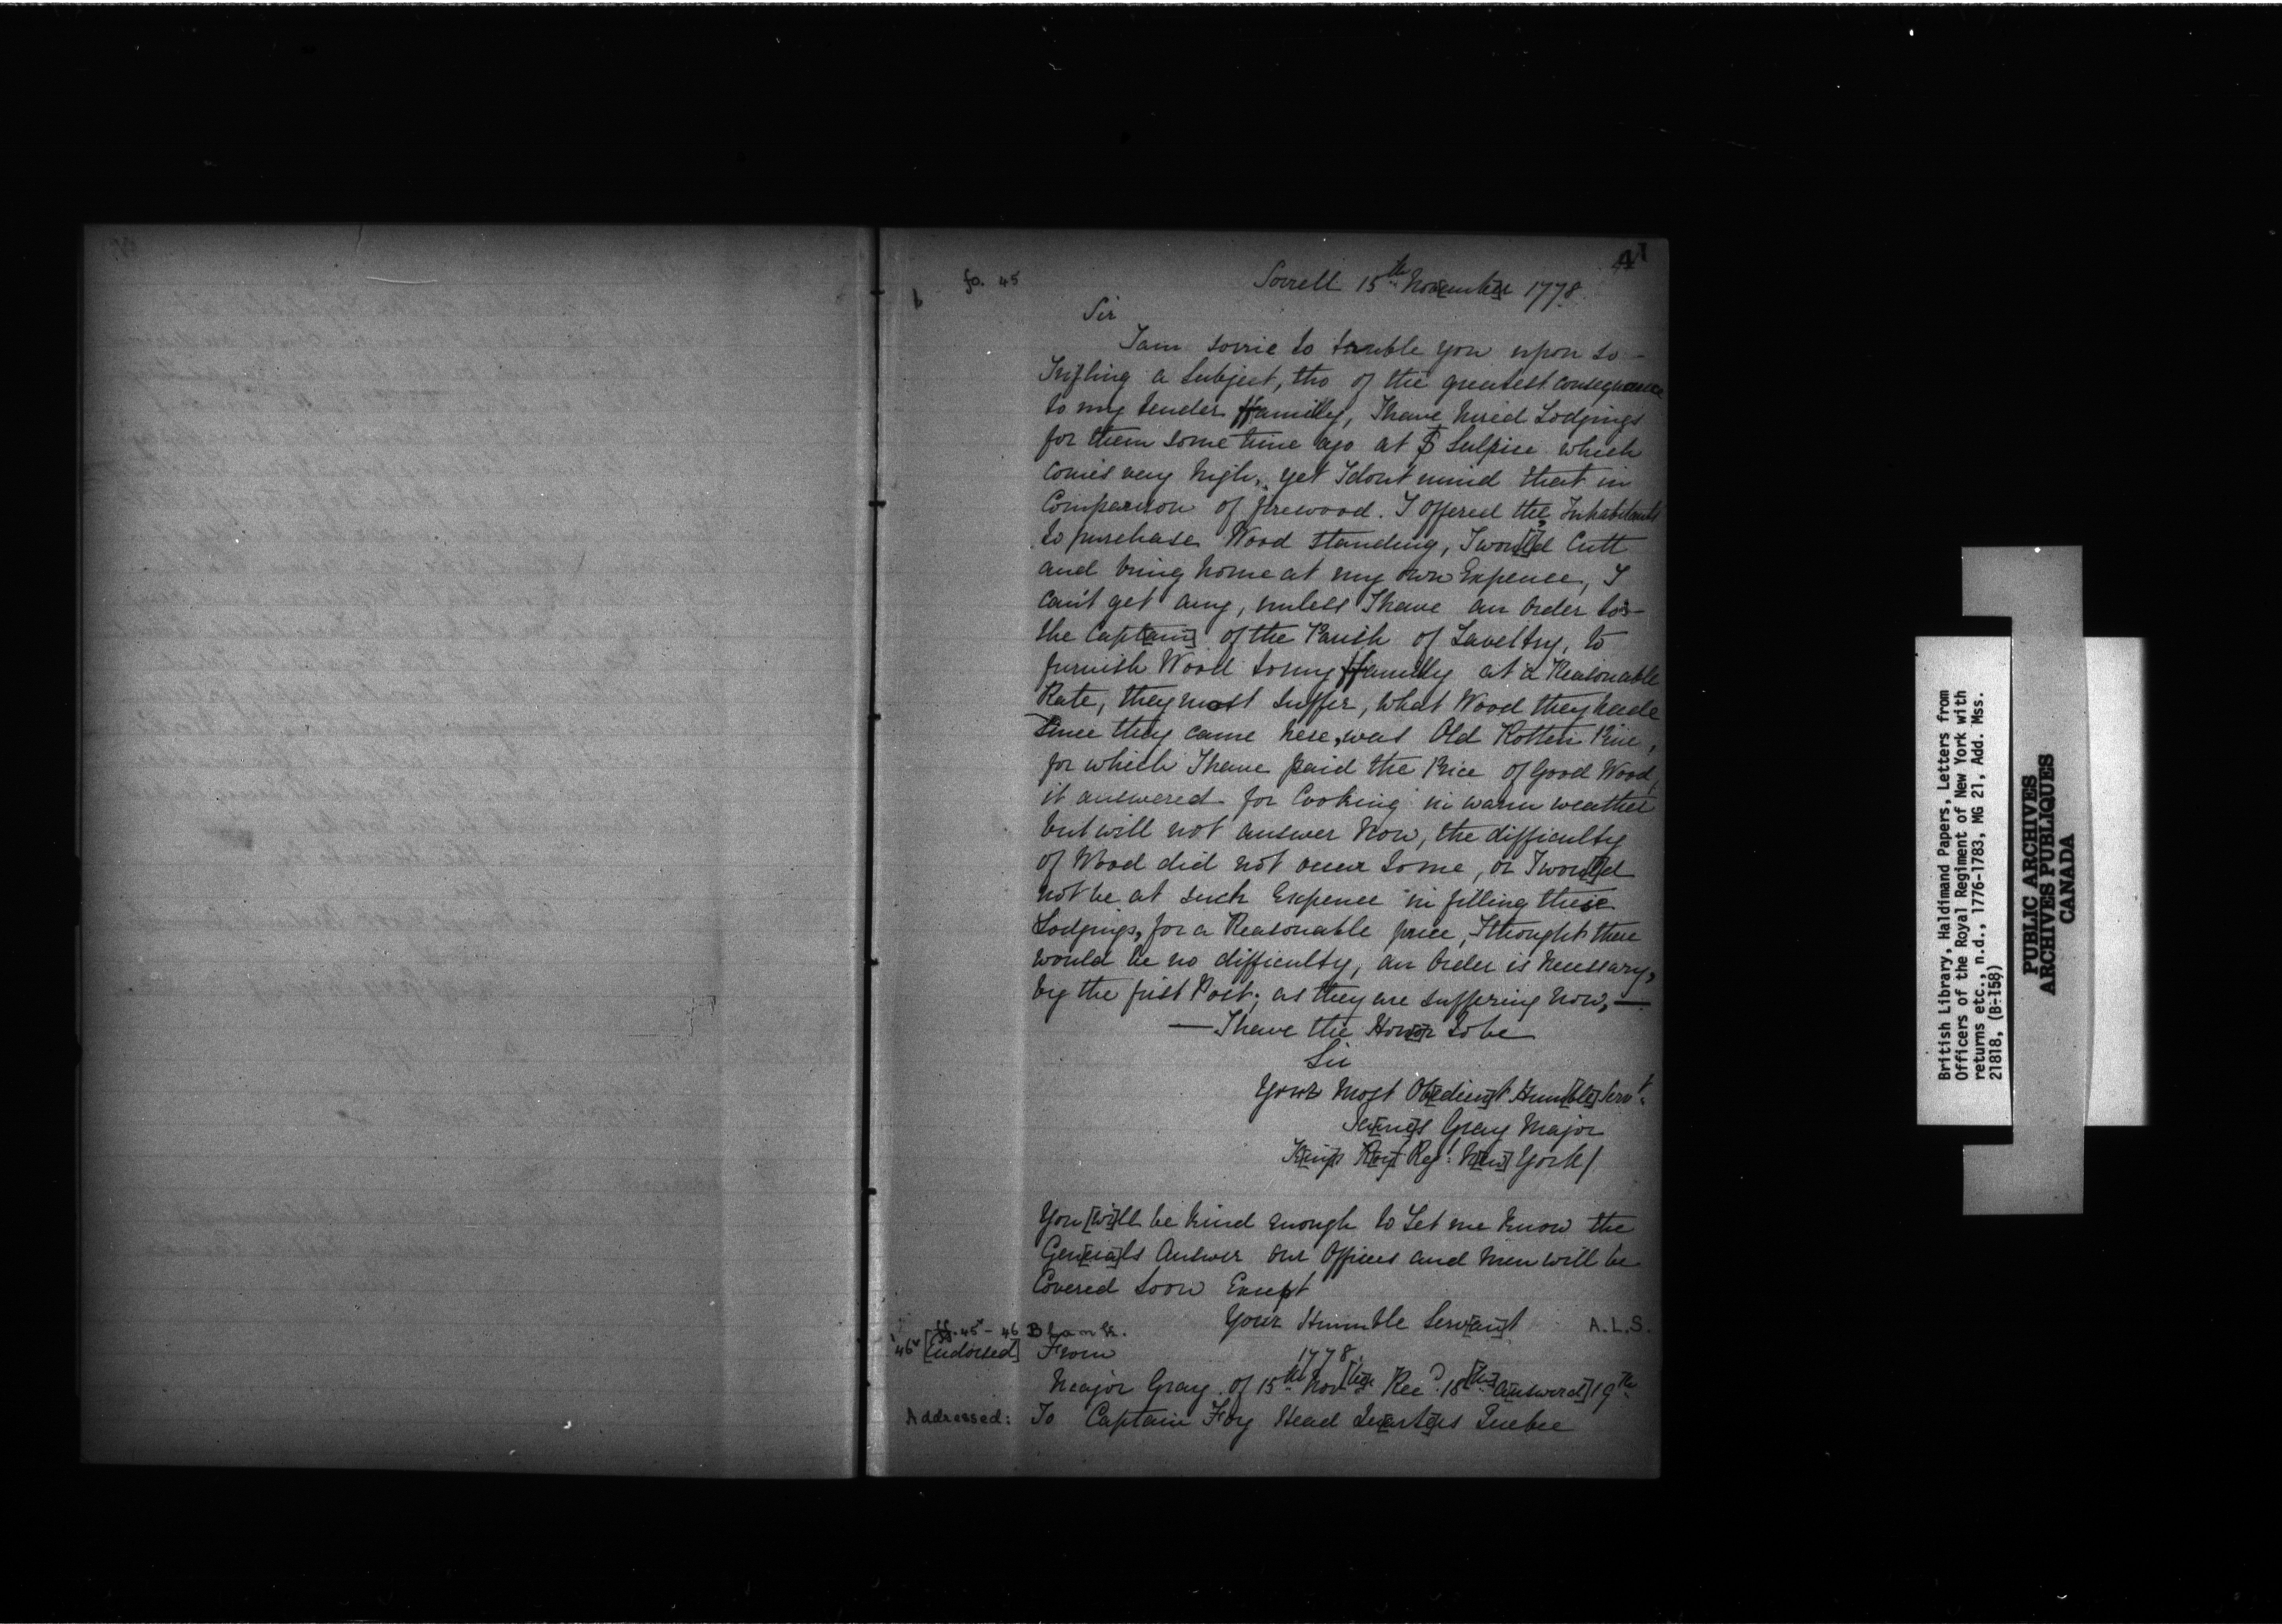 41
fo. 45
Sorrell 15th Nov[embe]r 1778
Sir
I am sorrie to truble you upon so -
Trifling a Subject, tho of the greatest consequence
to my tender ffamilly, I have hired Lodgings
for them some time ago at St Sulpice which
comes very high, yet I dont mind that in
Comparison of firewood. I offered the Inhabitants
to purchase Wood standing, I wou[l]d Cutt
and bring home at my own Expence, I
can't get any, unless I have an order to -
the Capt[ain] of the Parish of Laveltry, to
furnish Wood to my ffamilly at a Reasonable
Rate, they most suffer, what Wood they hade
since they came here, was Old Rotten Pine,
for which I have paid the Price of Good Wood,
it answered for Cooking in warm weather
but will not answer Now, the difficulty
of Wood did not occur to me, or I wou[l]d
not be at such Expence in fitting these
Lodgings, for a Reasonable price, I thought there
would be no difficulty, an Order is necessary,
by the first Post, as they are suffering now, —
— I have the Hon[o]r to be
Sir
Your Most Ob[edien]t Hum[ble] Servt.
Ja[me]s Gray Major
K[ing]s R[oy]l Regt. N[ew] York/
You [wi]ll be kind enough to Let me know the
Gen[era]ls Answer our Officers and men will be
Covered soon Except
Your Humble Serv[an]t
A.L.S.
ff. 45v - 46 Blank.
46v [Endorsed] From
1778.
Major Gray of 15th Nov[be]r Recd. 18[th] A[nswered] 19th
Addressed: To Captain Foy Head Qu[art]e[r]s Quebec
British Library, Haldimand Papers, Letters from
Officers of the Royal Regiment of New York with
returns etc., n.d., 1776-1783, MG 21, Add. Mss.
21818, (B-158)
PUBLIC ARCHIVES
ARCHIVES PUBLIQUES
CANADA